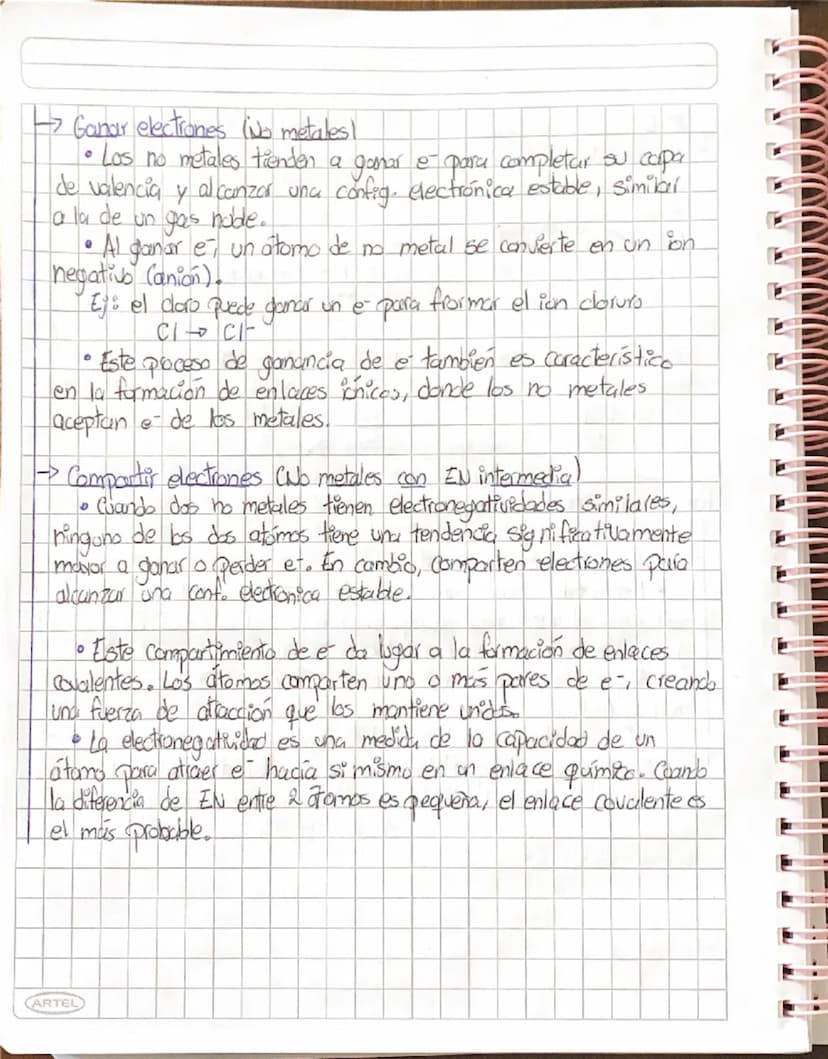 → Ganar electrones (No metales)
• Los no metales tienden a ganar e- para completar su capa
de valencia y alcanzar una config. electrónica estable, similar
a la de un gas noble.
• Al ganar e-, un átomo de no metal se convierte en un ion
negativo (anión).
Ej: el cloro puede ganar un e- para frormar el ion cloruro
Cl → Cl-
• Este proceso de ganancia de e- también es característico
en la formación de enlaces iónicos, donde los no metales
aceptan e- de los metales.
→ Compartir electrones (No metales con EN intermedia)
• Cuando dos no metales tienen electronegatividades similares,
ninguno de los dos atómos tiene una tendencia significativamente
mayor a ganar o perder e-. En cambio, comparten electrones para
alcanzar una conf. electronica estable.
• Este compartimiento de e- da lugar a la formación de enlaces
covalentes. Los átomos comparten uno o más pares de e-, creando
una fuerza de atracción que los mantiene unidos.
• La electronegatividad es una medida de la capacidad de un
átomo para atraer e- hacia si mismo en un enlace químico. Cuando
la diferencia de EN entre 2 átomos es pequeña, el enlace covalente es
el más probable.
ARTEL